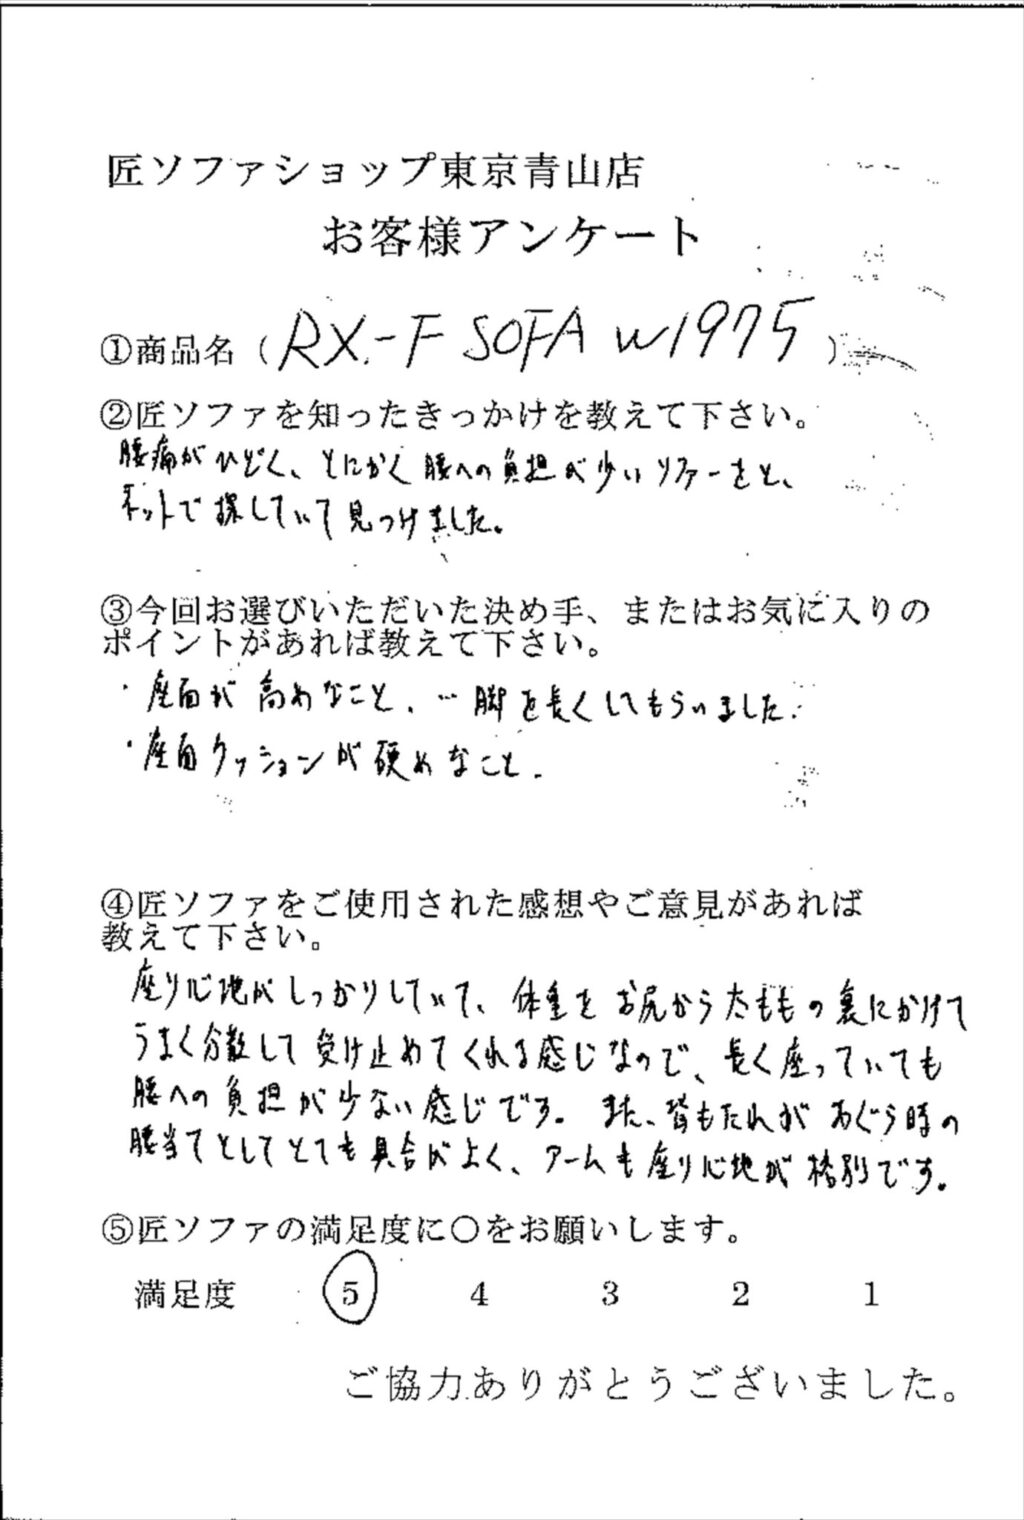 匠ソファショップ東京青山店
お客様アンケート
①商品名（RX-F SOFA W1975）
②匠ソファを知ったきっかけを教えて下さい。
腰痛がひどく、とにかく腰への負担が少いソファーをと、
ネットで探していて見つけました。
③今回お選びいただいた決め手、またはお気に入りの
ポイントがあれば教えて下さい。
・座面が高めなこと、…脚を長くしてもらいました。
・座面クッションが硬めなこと。
④匠ソファをご使用された感想やご意見があれば
教えて下さい。
座り心地がしっかりしていて、体重をお尻から太ももの裏にかけて
うまく分散して受け止めてくれる感じなので、長く座っていても
腰への負担が少ない感じです。また、背もたれがあぐら時の
腰当てとしてとても具合がよく、アームも座り心地が格別です。
⑤匠ソファの満足度に〇をお願いします。
満足度 5 4 3 2 1
ご協力ありがとうございました。